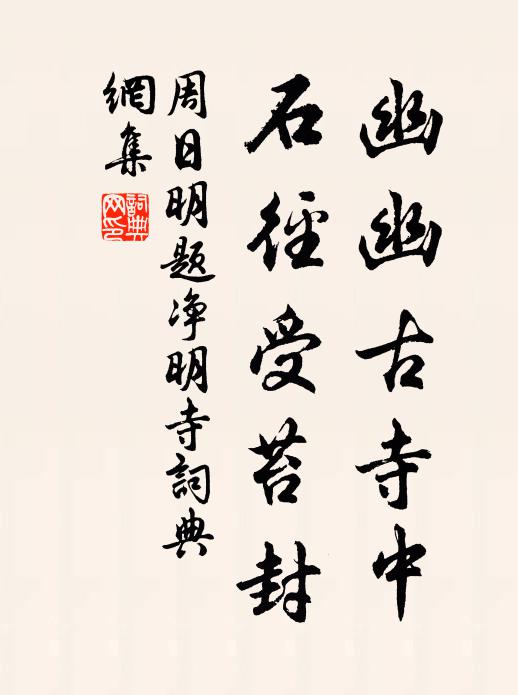 幽幽古寺中
石徑受苔封
周日明题净明寺詞典
網集
詞典
网印